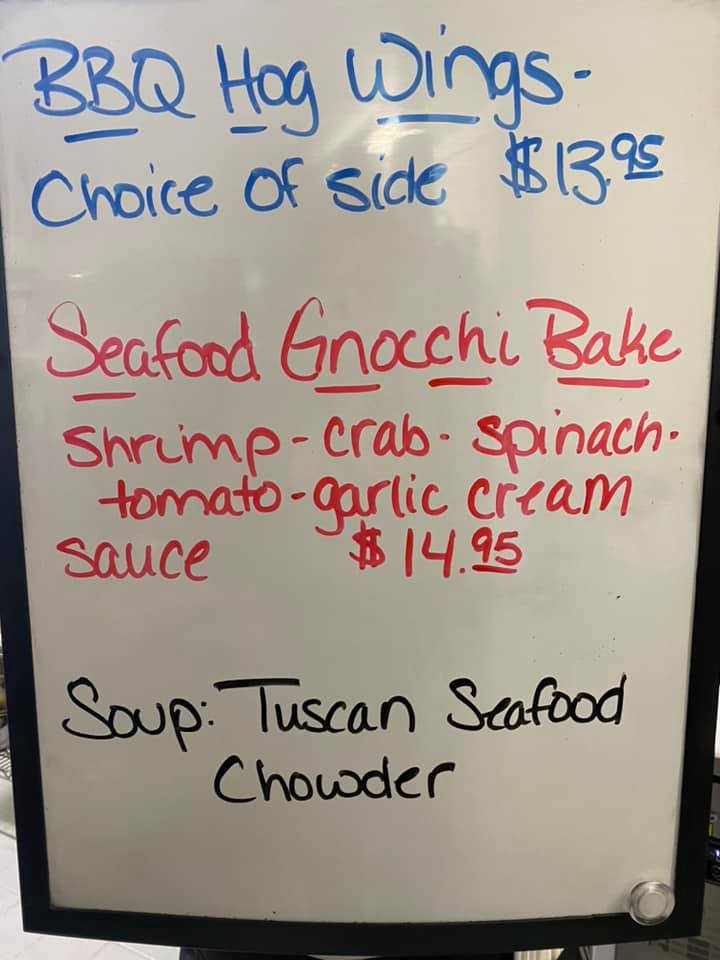 BBQ Hog Wings-
Choice of side $13.95
Seafood Gnocchi Bake
Shrimp-crab-spinach-
tomato-garlic cream
sauce $14.95
Soup: Tuscan Seafood
Chowder